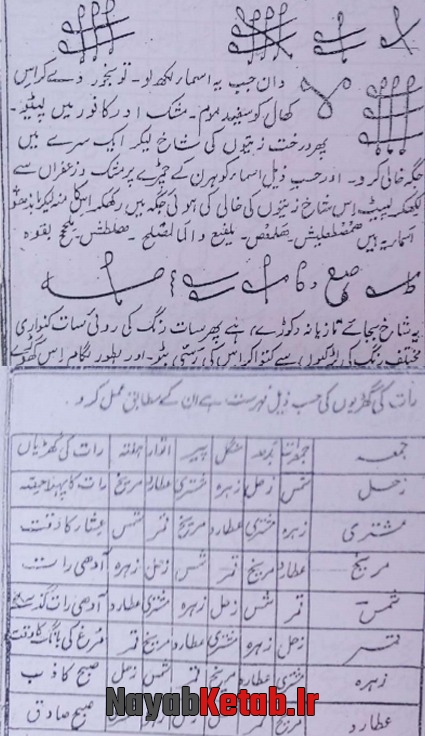 دان جب یہ اسمار لکھ لو۔ تو بخور دے کر اس
کھال کو سفید موم۔ مشک اور کافور میں لپیٹو۔
پھر درخت زیتون کی شاخ لیکر ایک سرے میں
جگہ خالی کرو۔ اور حسب ذیل اسماء کو ہرن کے چمڑے پر مشک و زعفران سے
لکھ کر لپیٹ اس شاخ زیتون کی خالی کی ہوئی جگہ میں رکھکر اسکا منہ
اسماریہ ہیں
یہ شاخ بجائے تازیانہ و کوڑے ہے پھر سات رنگ کی روئی سات کنواری
مختلف رنگ کی لڑکیوں سے کتوا کر اس کی رسی بٹو۔ اور بطور لگام اس گھوڑے
رات کی گھڑیوں کی حسب ذیل فہرست ہے ان کے مطابق عمل کرو۔
جمعہ جمعرات بدھ منگل پیر اتوار ہفتہ رات کی گھڑیاں
زحل شمس زحل زہرہ مشتری عطارد مریخ رات کا پہلا حصہ
مشتری زہرہ مشتری عطارد مریخ قمر شمس عشار کا وقت
مریخ عطارد مریخ قمر شمس زحل زہرہ آدھی رات
شمس قمر شمس زحل زہرہ مشتری عطارد آدھی رات گذرے
قمر زحل زہرہ مشتری عطارد مریخ قمر مرغ کی بانگ کا وقت
زہرہ مشتری عطارد مریخ قمر شمس زحل صبح کاذب
عطارد مریخ صبح صادق
NayabKetab.Ir